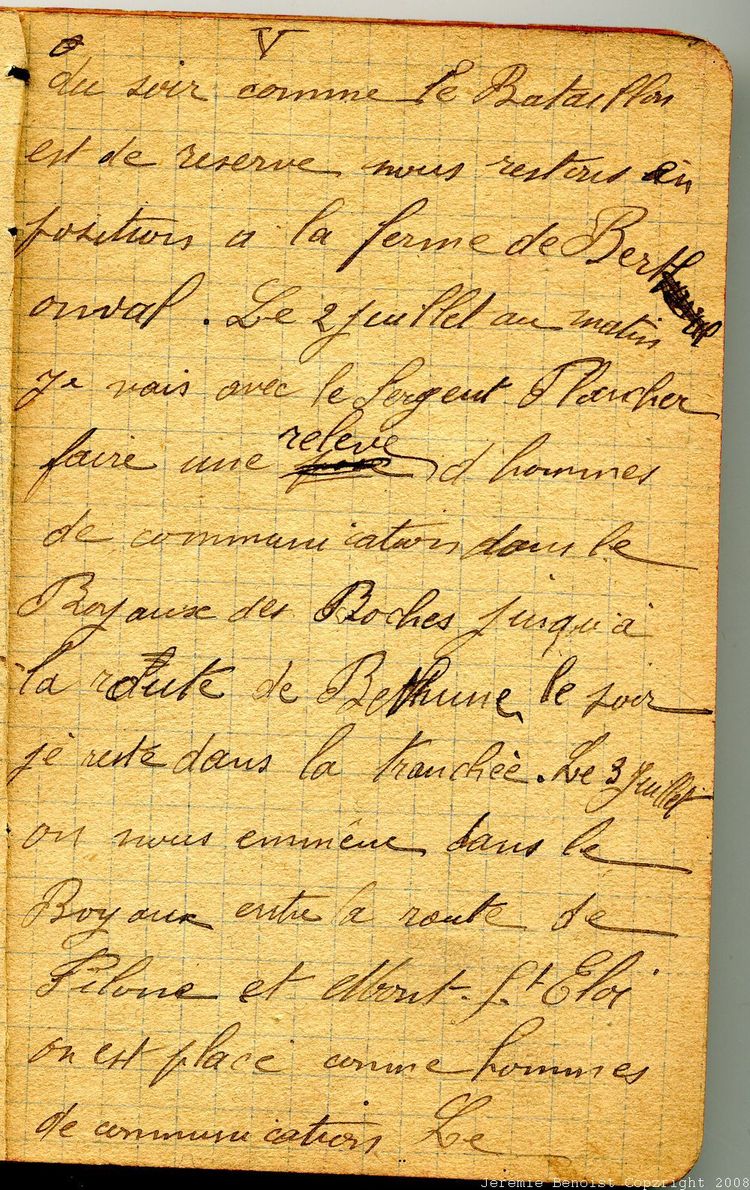 V
du soir comme le Bataillon
est de reserve nous restons en
positions a la ferme de Berth
onval. Le 2 juillet au matin
je vais avec le Sergent Plancher
faire une releve d'hommes
de communication dans le
Boyaux des Boches jusqu'à
la route de Bethune le soir
je reste dans la tranchée. Le 3 Juillet
on nous emméne dans le
Boyaux entre la route de
et Mont-St Eloi
on est placé comme hommes
de communication Le
Jeremie Benoist Copzright 2008